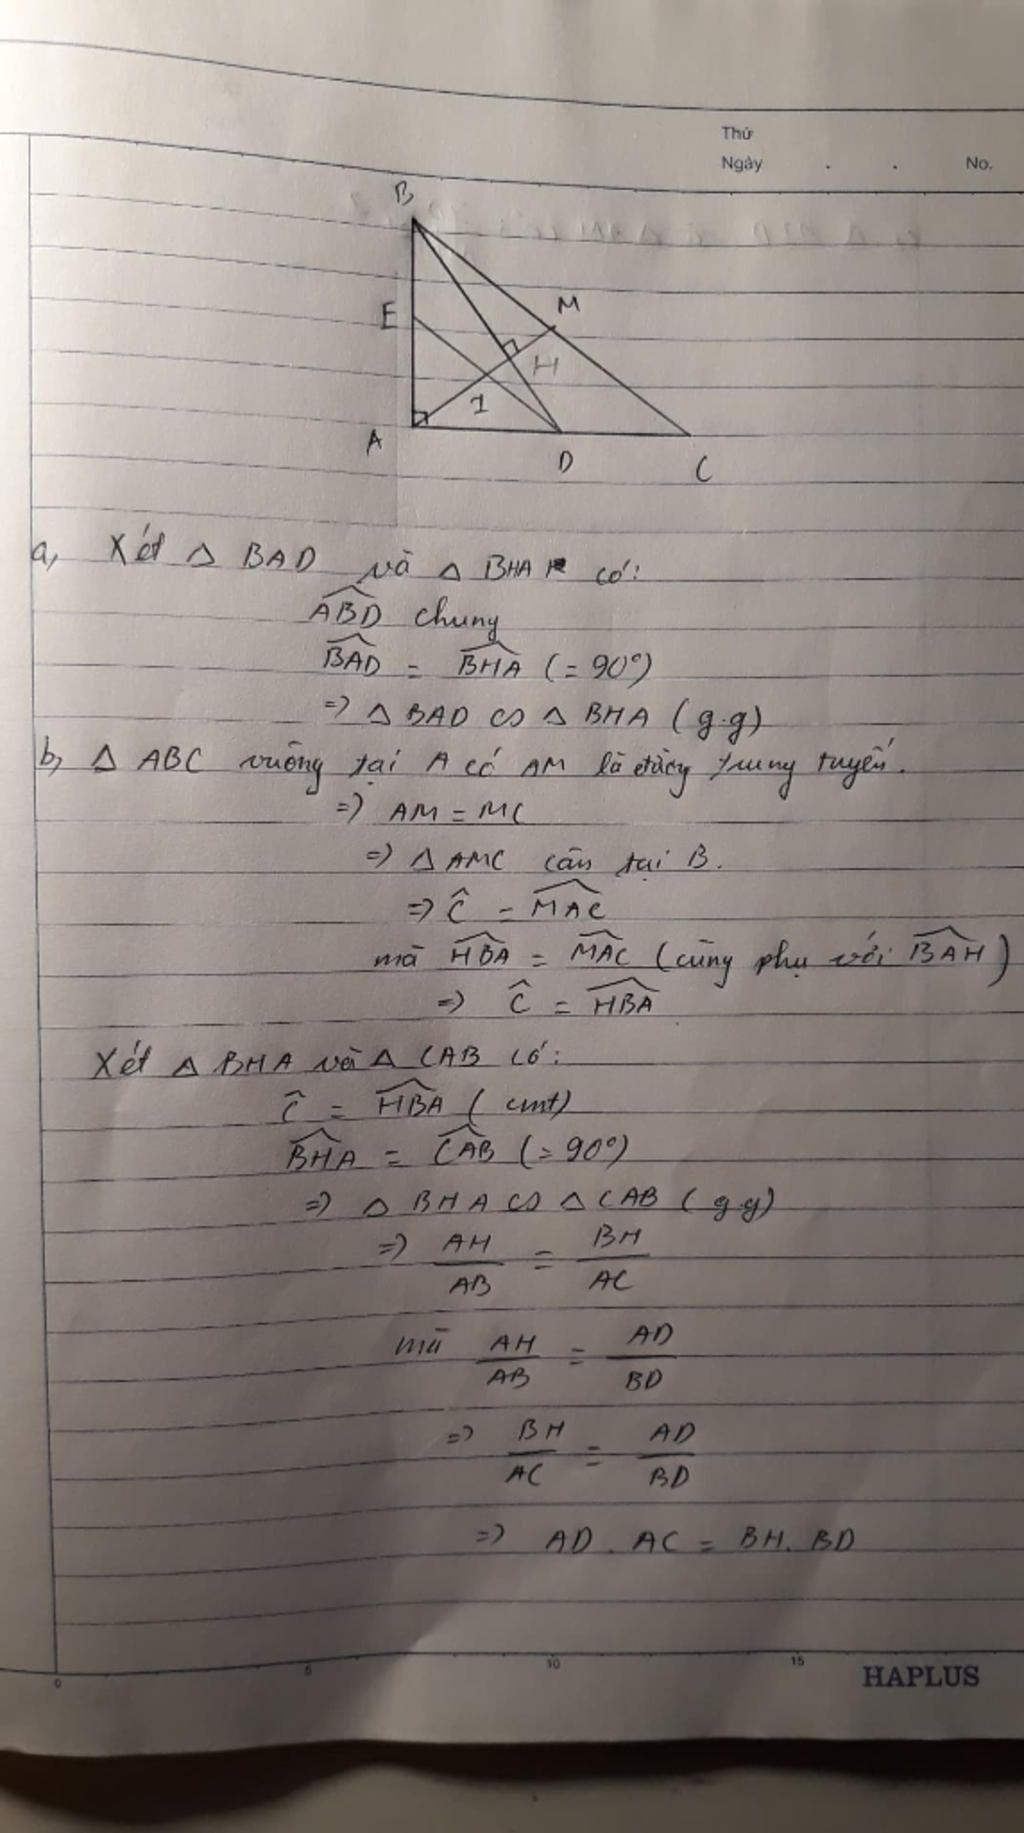 Thứ
Ngày . . No.
B
E
M
H
I
A
D
C
a, Xét Δ BAD và Δ BHA có:
\widehat{ABD} chung
\widehat{BAD} = \widehat{BHA} (= 90°)
=> Δ BAD ∽ Δ BHA (g.g)
b, Δ ABC vuông tại A có AM là đường trung tuyến.
=> AM = MC
=> Δ AMC cân tại B.
=> \widehat{C} = \widehat{MAC}
mà \widehat{HBA} = \widehat{MAC} (cùng phụ với \widehat{BAH})
=> \widehat{C} = \widehat{HBA}
Xét Δ BHA và Δ CAB có:
\widehat{C} = \widehat{HBA} (cmt)
\widehat{BHA} = \widehat{CAB} (= 90°)
=> Δ BHA ∽ Δ CAB (g.g)
=> AH/AB = BH/AC
mà AH/AB = AD/BD
=> BH/AC = AD/BD
=> AD . AC = BH . BD
0 5 10 15
HAPLUS